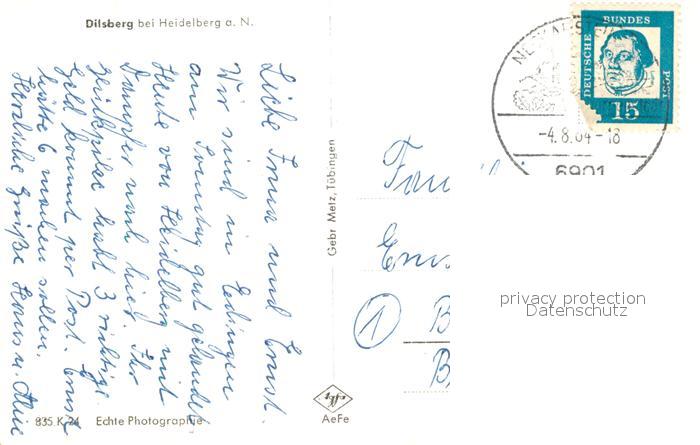 Dilsberg bei Heidelberg a. N.
Liebe Irma und Ernst.
Wir sind in Edingen
am Sonntag gut gelandet
Heute von Heidelberg mit
Dampfer nach hier. Ihr
habt 3 richtige
Geld kommt per Post. Ernst
hätte 6 machen sollen.
Herzliche Grüße Hans u. Aline
Gebr Metz, Tübingen
DEUTSCHE
BUNDES
POST
15
-4.8.64-18
6901
Fam
Erns
1 B
B
privacy protection
Datenschutz
835 K 24 Echte Photographie
AeFe